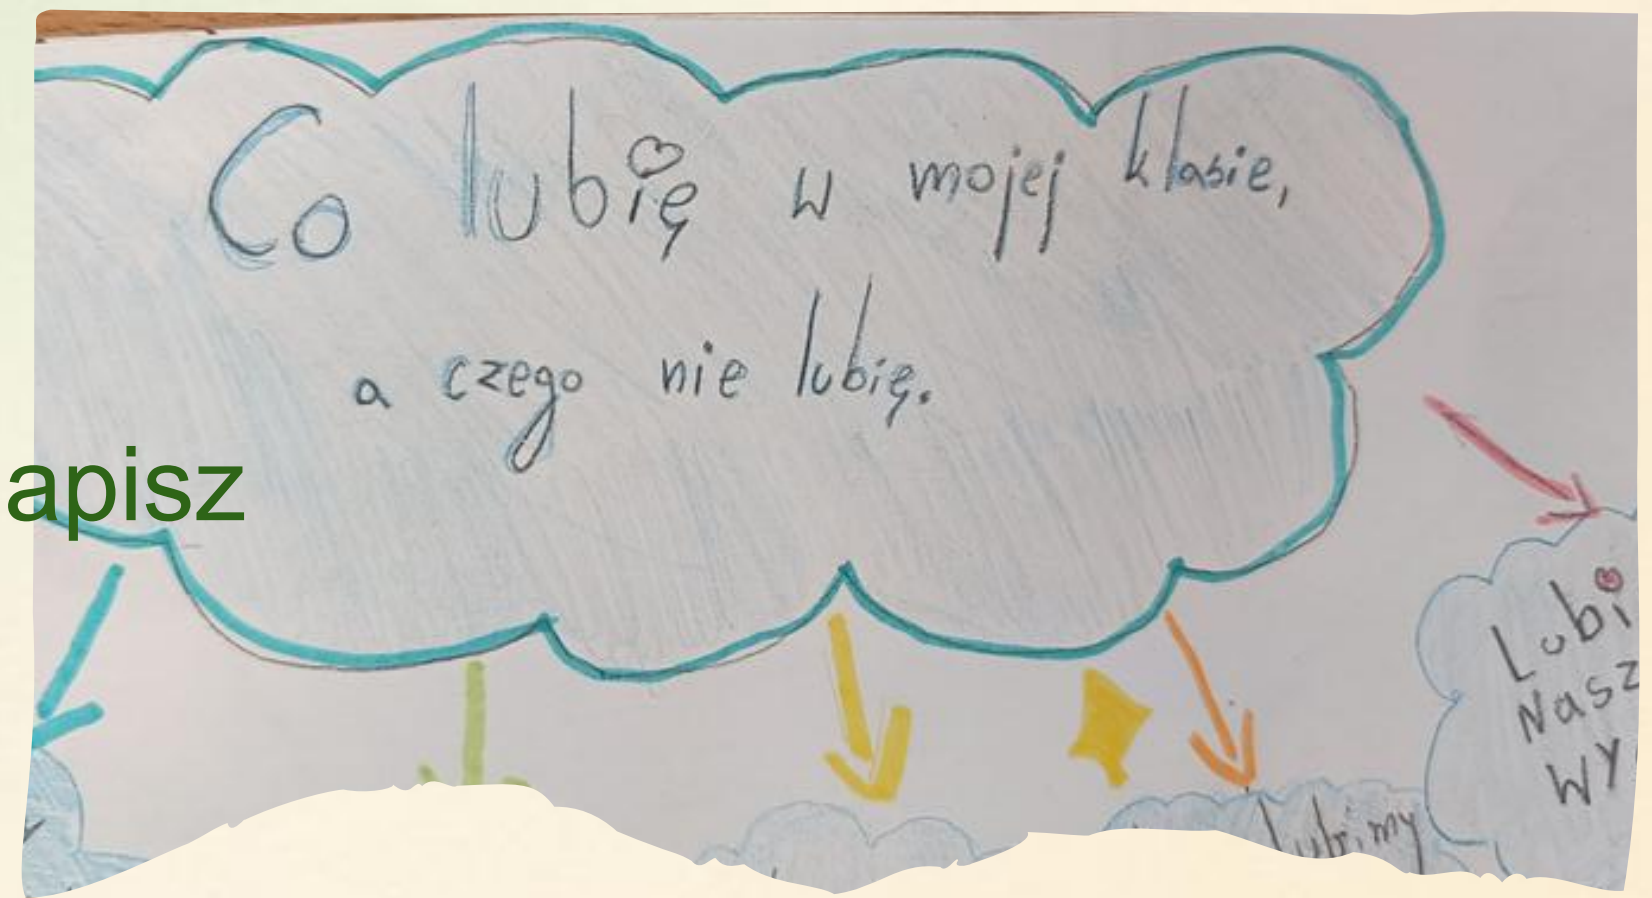 Co lubię w mojej klasie,
a czego nie lubię.
apisz
Lubi
Nasz
WY
lubimy